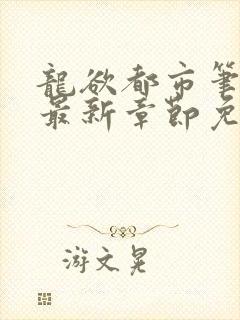 龍欲都市筆
最新章節免
游文晃